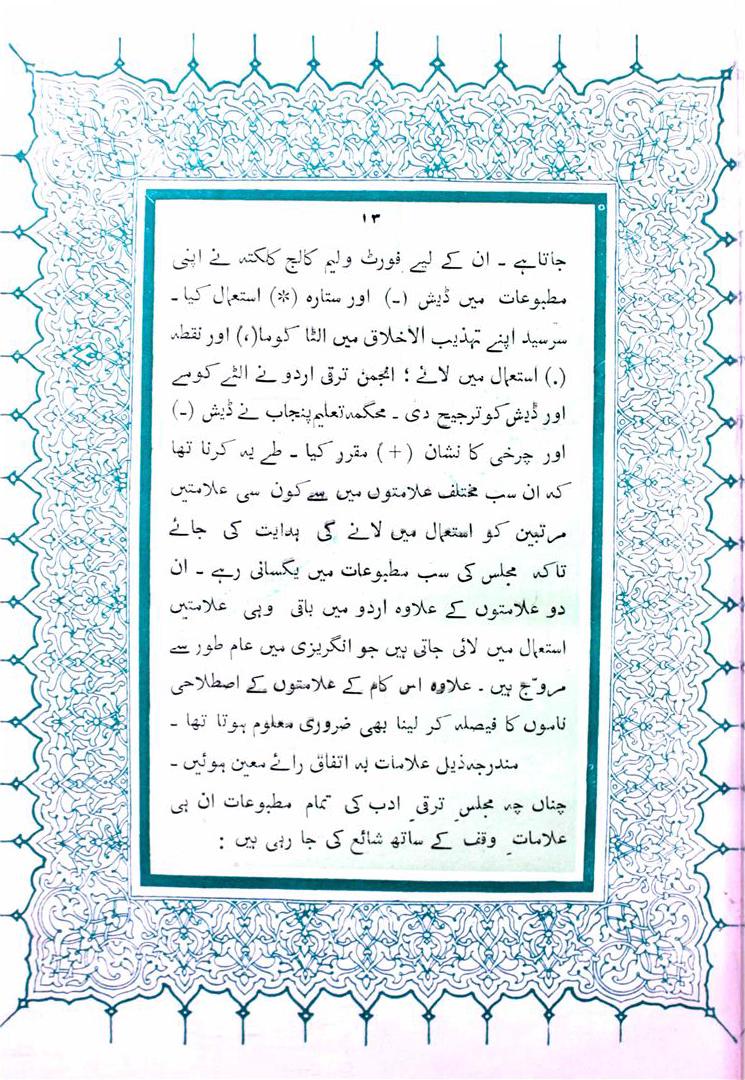 ۱۳
جاتا ہے ۔ ان کے لیے فورٹ ولیم کالج کلکتہ نے اپنی
مطبوعات میں ڈیش (ـ) اور ستارہ (*) استعمال کیا ۔
سرسید اپنے تہذیب الاخلاق میں الٹا کوما(،) اور نقطہ
(.) استعمال میں لائے ؛ انجمن ترقی اردو نے الٹے کومے
اور ڈیش کو ترجیح دی ۔ محکمہ تعلیم پنجاب نے ڈیش (ـ)
اور چرخی کا نشان (+) مقرر کیا ۔ طے یہ کرنا تھا
کہ ان سب مختلف علامتوں میں سے کون سی علامتیں
مرتبین کو استعمال میں لانے کی ہدایت کی جائے
تاکہ مجلس کی سب مطبوعات میں یکسانی رہے ۔ ان
دو علامتوں کے علاوہ اردو میں باقی وہی علامتیں
استعمال میں لائی جاتی ہیں جو انگریزی میں عام طور سے
مروّج ہیں ۔ علاوہ اس کام کے علامتوں کے اصطلاحی
ناموں کا فیصلہ کر لینا بھی ضروری معلوم ہوتا تھا ۔
مندرجہ ذیل علامات بہ اتفاق رائے معین ہوئیں ۔
چناں چہ مجلسِ ترقیِ ادب کی تمام مطبوعات ان ہی
علاماتِ وقف کے ساتھ شائع کی جا رہی ہیں :